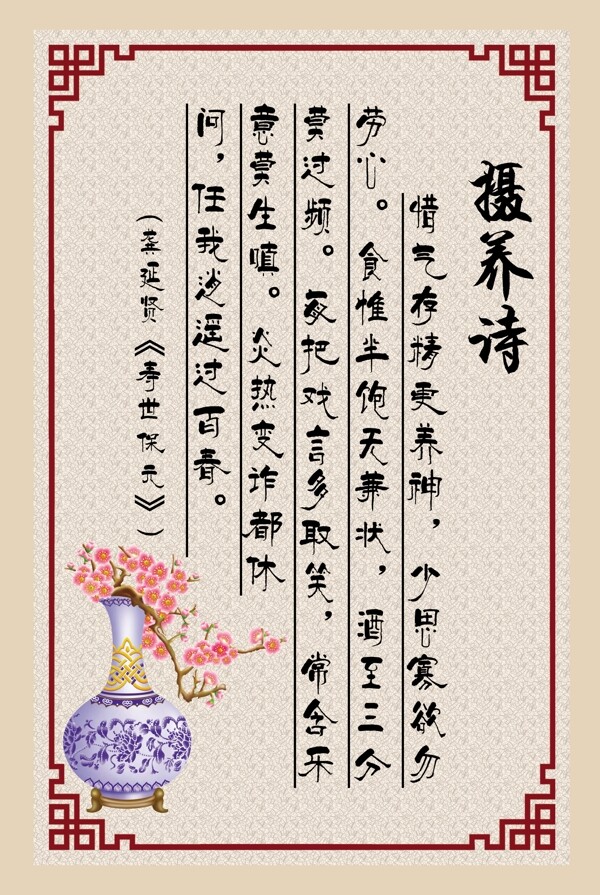 摄养诗
惜气存精更养神，少思寡欲勿
劳心。食惟半饱无兼状，酒至三分
莫过频。每把戏言多取笑，常含乐
意莫生嗔。炎热变诈都休
问，任我逍遥过百春。
（龚延贤《寿世保元》）